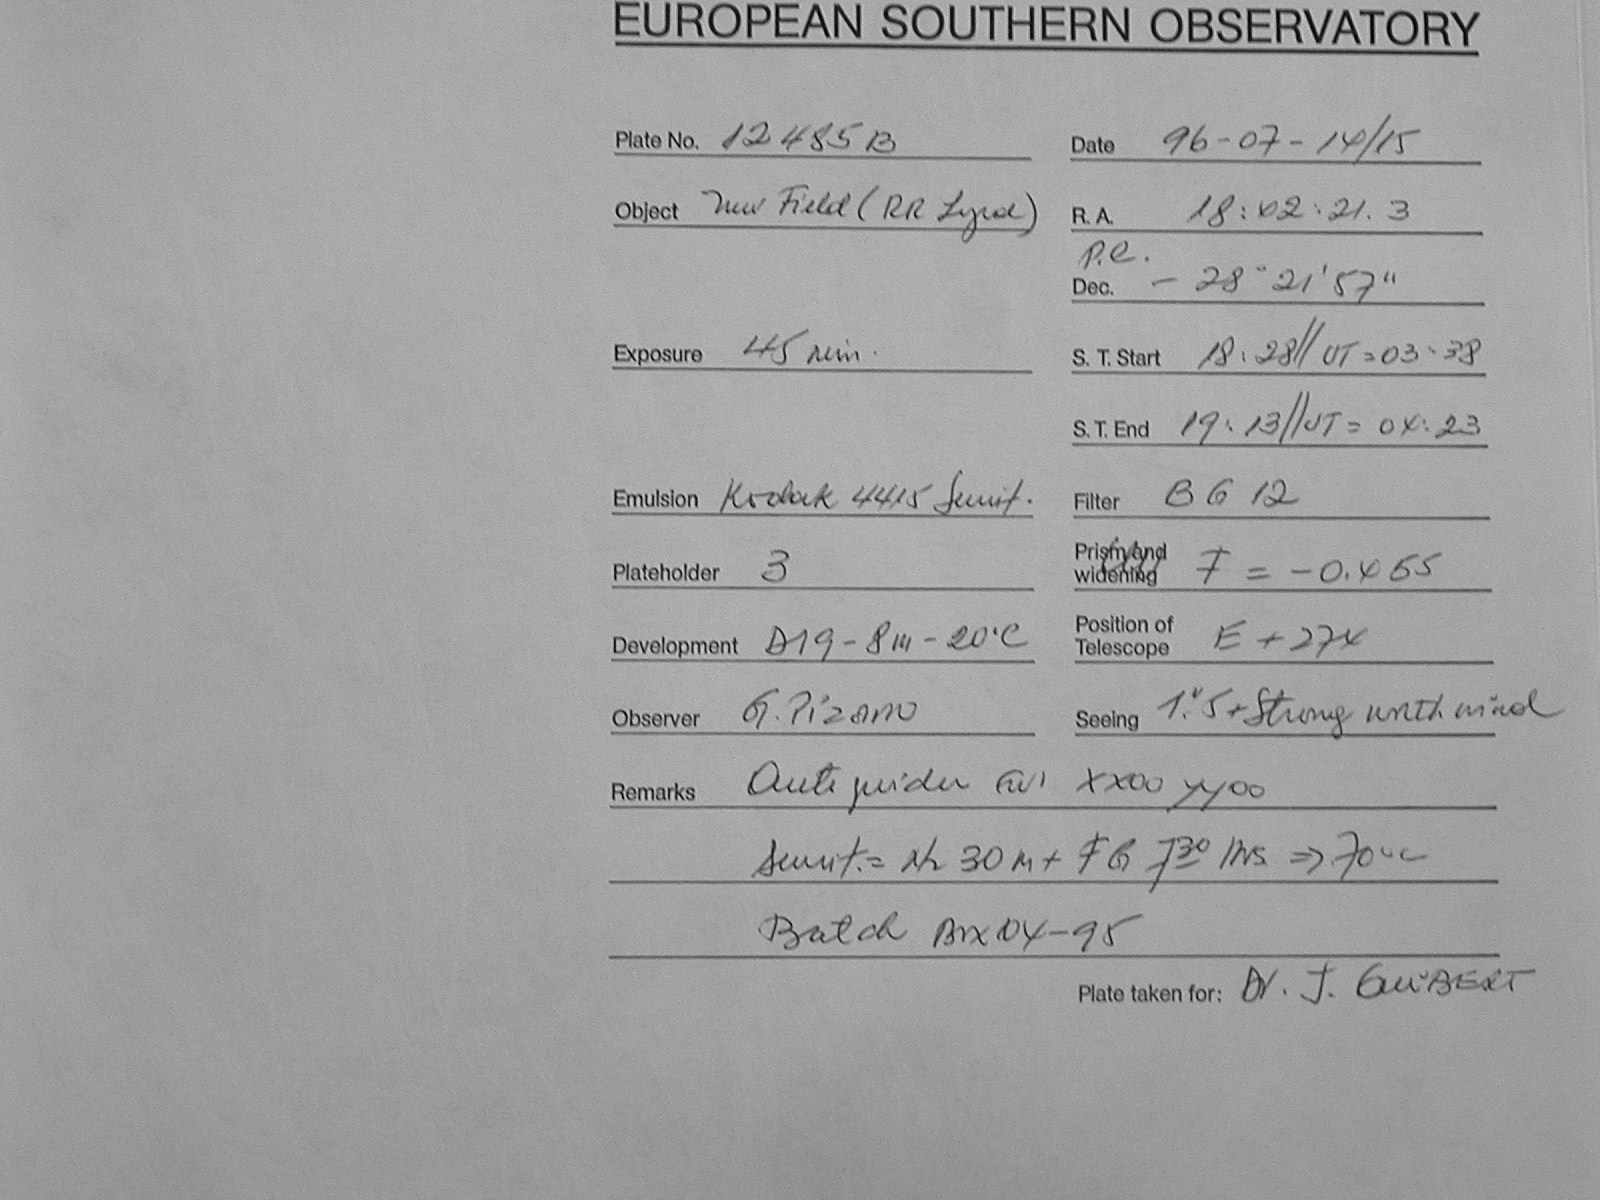 EUROPEAN SOUTHERN OBSERVATORY
Plate No. 12485B Date 96-07-14/15
Object New Field (RR Lyrd) R. A. 18:02:21.3
P.C.
Dec. - 28° 21' 57"
Exposure 45 min. S. T. Start 18:28// UT=03:38
S. T. End 19:13//UT= 04:23
Emulsion Kodak 4415 Sensit. Filter BG 12
Plateholder 3 Prism and widening F = -0.465
Development D19-8m-20°C Position of Telescope E + 274
Observer G. Pizarro Seeing 1".5 + Strong north wind
Remarks Auto guider XX00 YY00
Sensit.= N2 30 m + FG hrs => 70°C
Batch 04-95
Plate taken for: Dr. J. GUIBERT